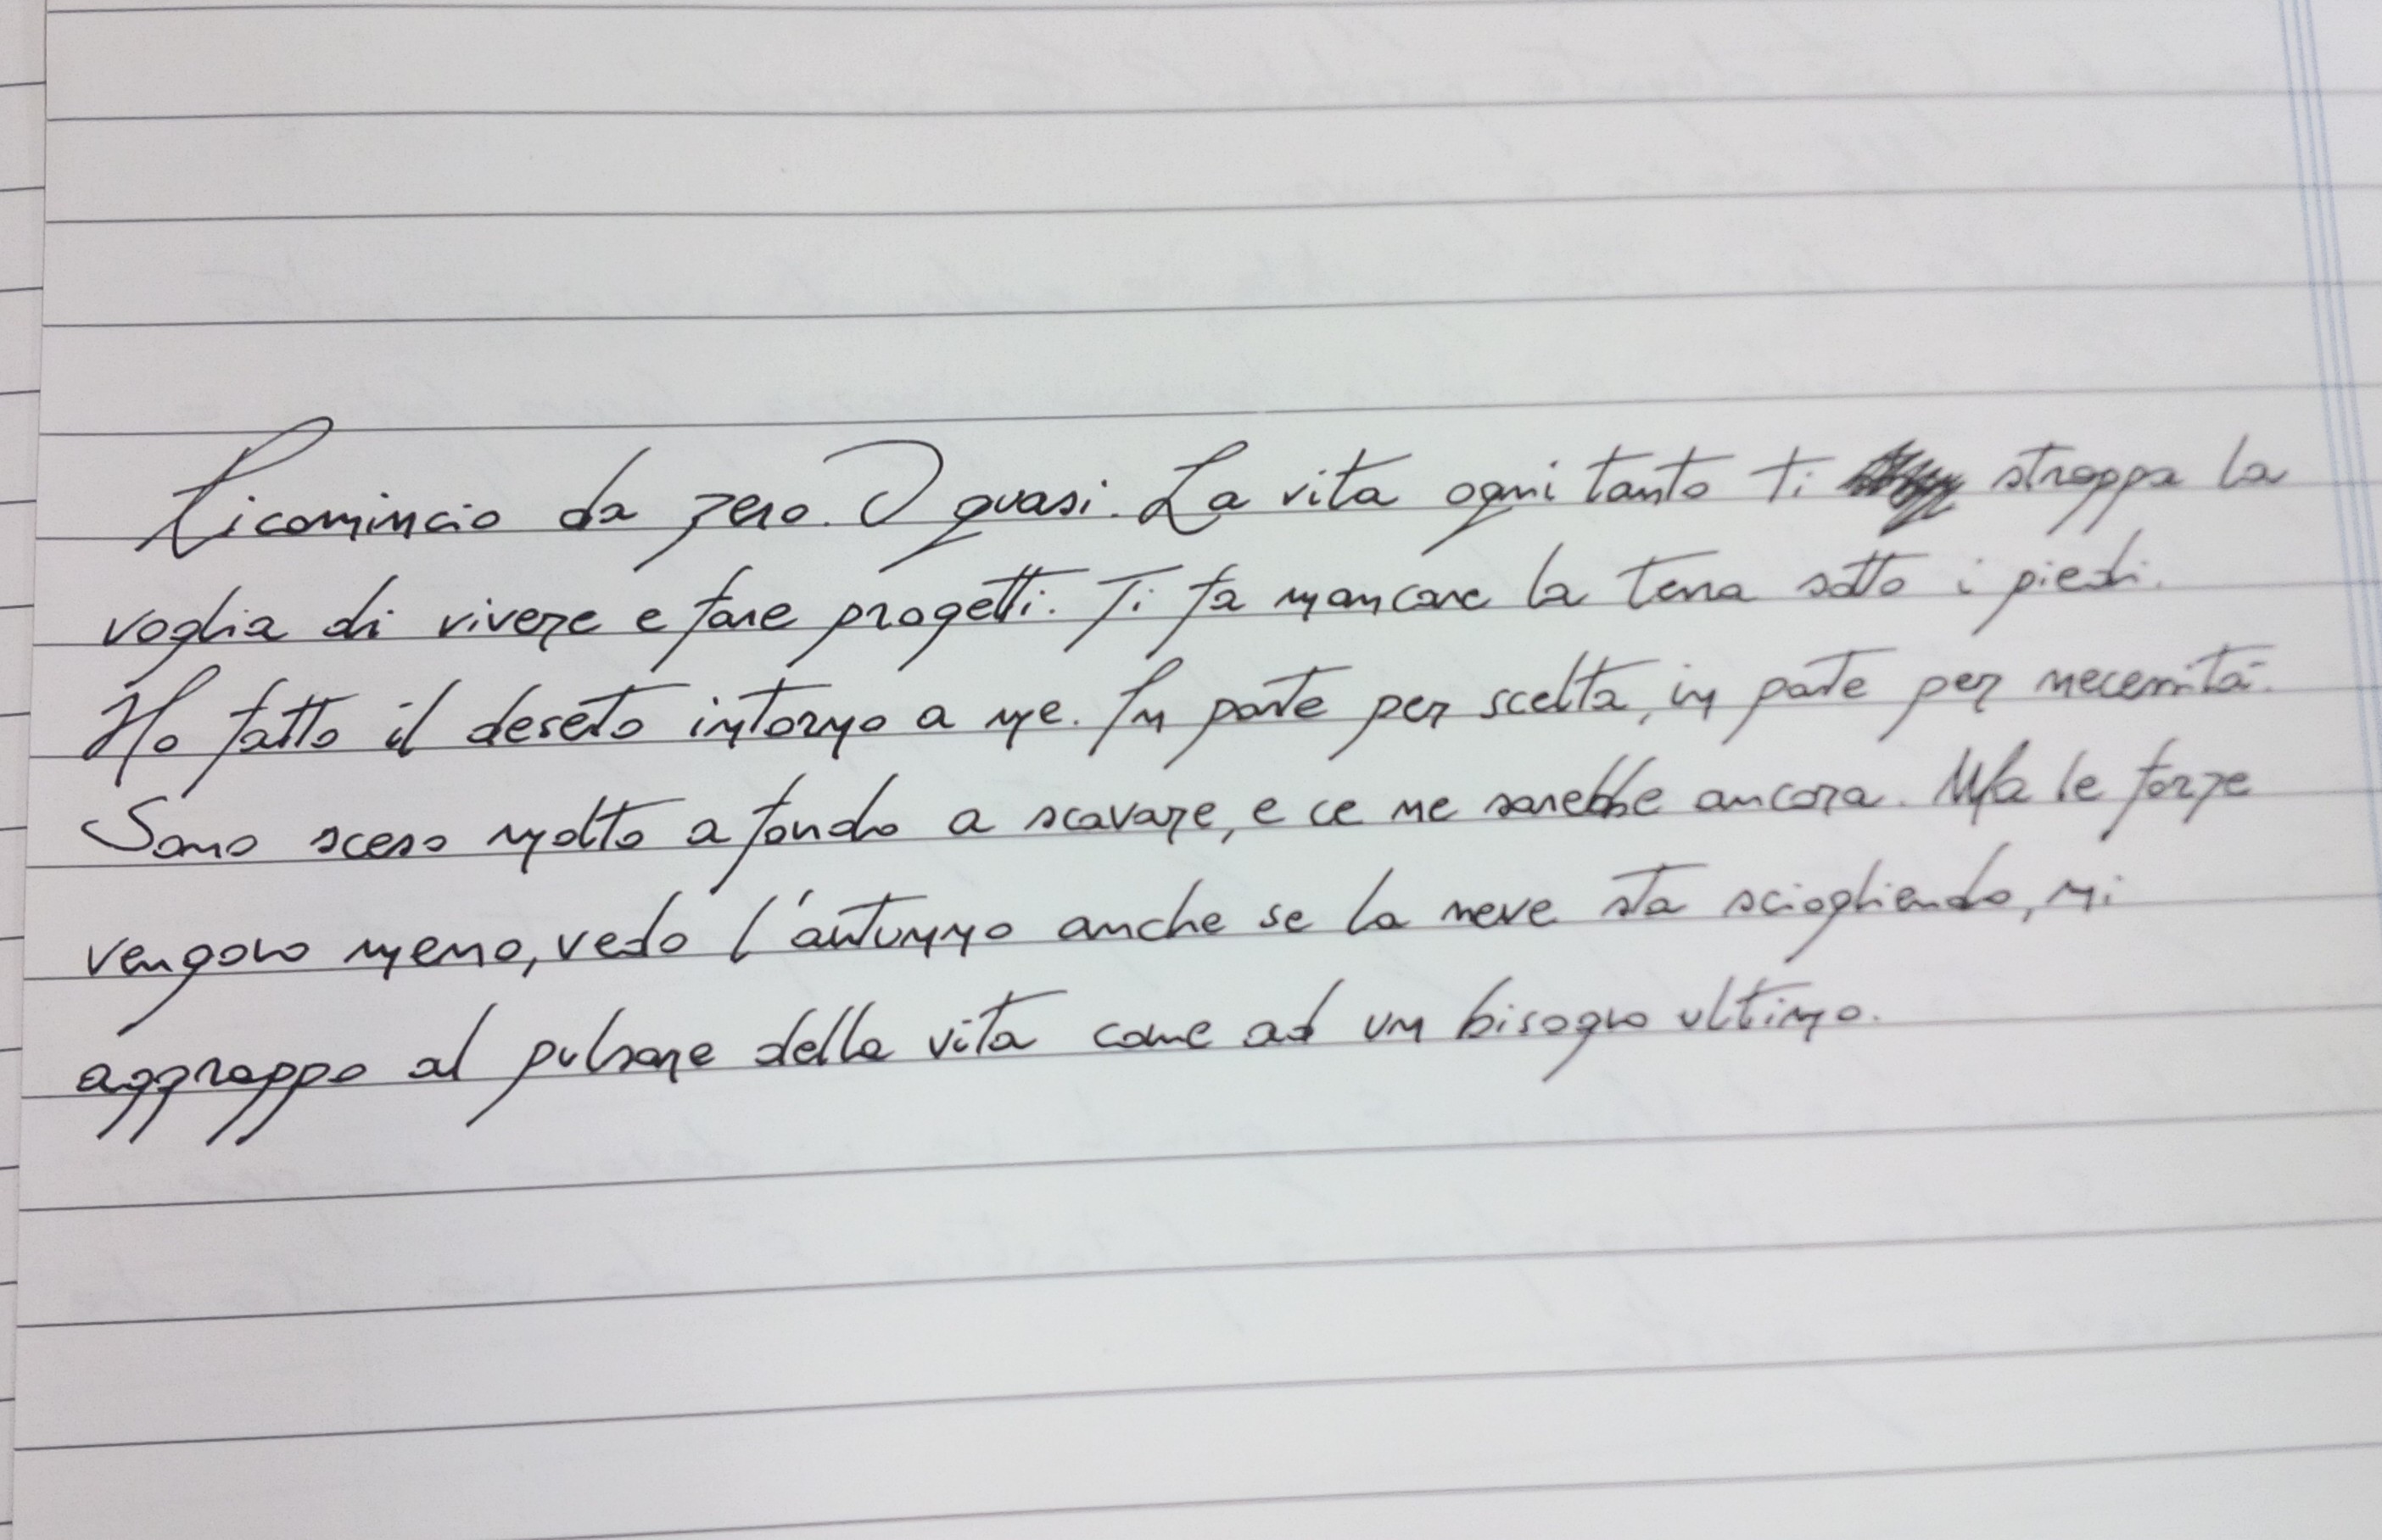 Ricomincio da zero. O quasi. La vita ogni tanto ti strappa la
voglia di vivere e fare progetti. Ti fa mancare la terra sotto i piedi.
Ho fatto il deserto intorno a me. In parte per scelta, in parte per necessità.
Sono sceso molto a fondo a scavare, e ce ne sarebbe ancora. Ma le forze
vengono meno, vedo l'autunno anche se la neve sta sciogliendo, mi
aggrappo al pulsare della vita come ad un bisogno ultimo.